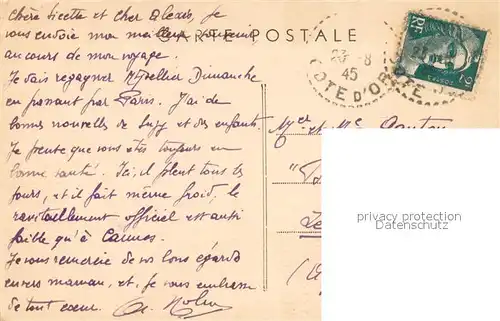 CARTE POSTALE
Chère Lisette et cher Alexis, je
vous envoie mon meilleur souvenir
au cours de mon voyage.
Je vais regagner Dimanche
en passant par Paris. J'ai de
bonnes nouvelles de et des enfants.
Je pense que vous êtes toujours en
bonne santé. Ici, il pleut tous les
jours, et il fait même froid, le
ravitaillement officiel est aussi
faible qu'à Cannes.
Je vous remercie de vos bons égards
envers maman, et je vous embrasse
de tout coeur.
8
45
COTE D'OR
RF
et
privacy protection
Datenschutz